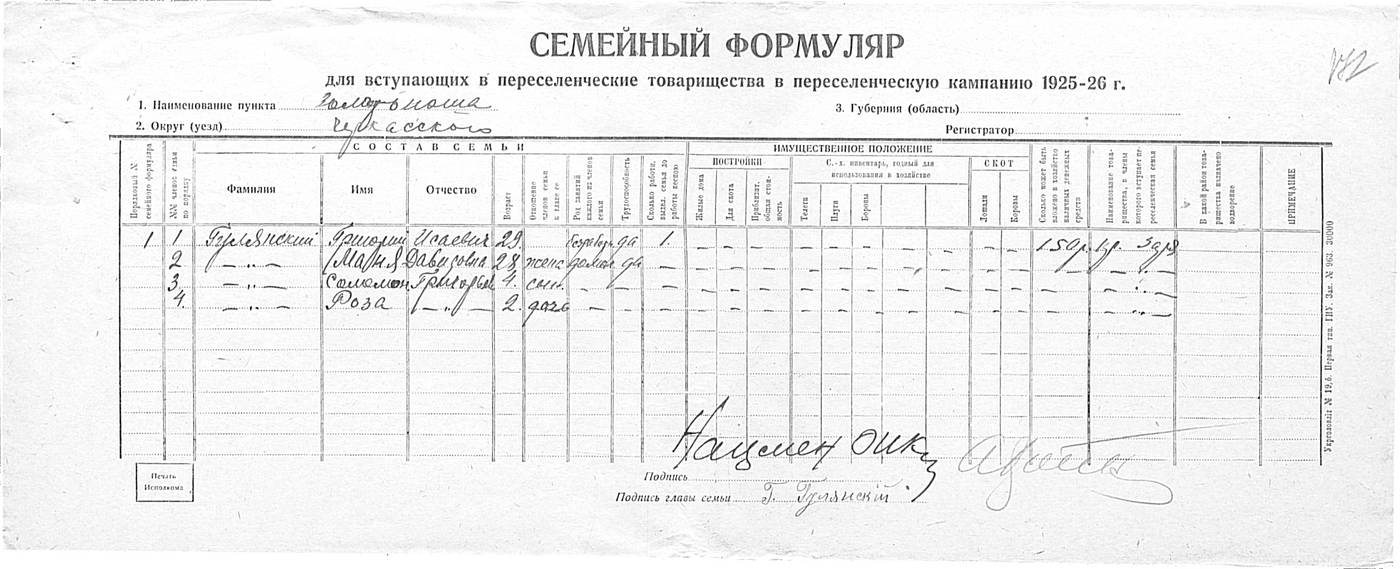 СЕМЕЙНЫЙ ФОРМУЛЯР
для вступающих в переселенческие товарищества в переселенческую кампанию 1925-26 г.
1. Наименование пункта Золотоноша
3. Губерния (область)
2. Округ (уезд) Черкасского
Регистратор
СОСТАВ СЕМЬИ
ИМУЩЕСТВЕННОЕ ПОЛОЖЕНИЕ
Порядковый № семейного формуляра
№№ членов семьи по порядку
Фамилия
Имя
Отчество
Возраст
Отношение членов семьи к главе ее
Род занятий каждого из членов семьи
Трудоспособность
Сколько работн. выдел. семья до работы весною
ПОСТРОЙКИ
Жилые дома
Для скота
Приблизит. общая стоимость
С.-х. инвентарь, годный для использования в хозяйстве
Телеги
Плуги
Бороны
СКОТ
Лошади
Коровы
Сколько может быть вложено в хозяйство наличных денежных средств
Наименование товарищества, в члены которого вступает переселенческая семья
В какой район товарищества назначено водворение
ПРИМЕЧАНИЕ
1 1 Гулянский Григорий Исаевич 29 да 1. — — — — — — — — — 150 р. Заря
2 — „ — Маня Давидовна 28 жена домаш да — — — — — — — — — — — „ —
3. — „ — Соломон Григорьев 4. сын. — — — — — — — — — — — — — „ —
4. — „ — Роза — „ — 2. дочь — — — — — — — — — — — — — „ —
Нацмен ОИК
Печать Исполкома
Подпись
Подпись главы семьи Г. Гулянский
Укрголовліт № 19,6. Первая тип. ГИУ. Зак. № 963. 30000